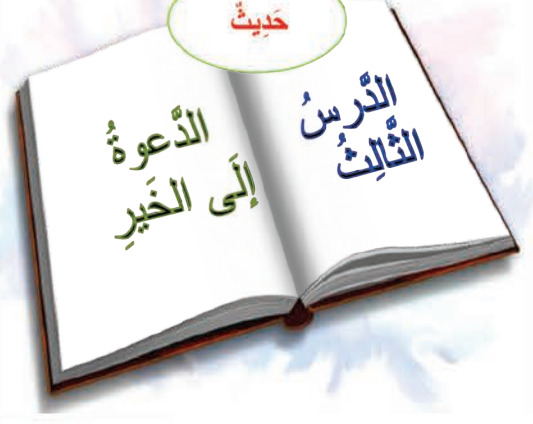 حَدِيثٌ
الدَّرسُ
الثَّالِثُ
الدَّعوةُ
إِلَى الخَيرِ